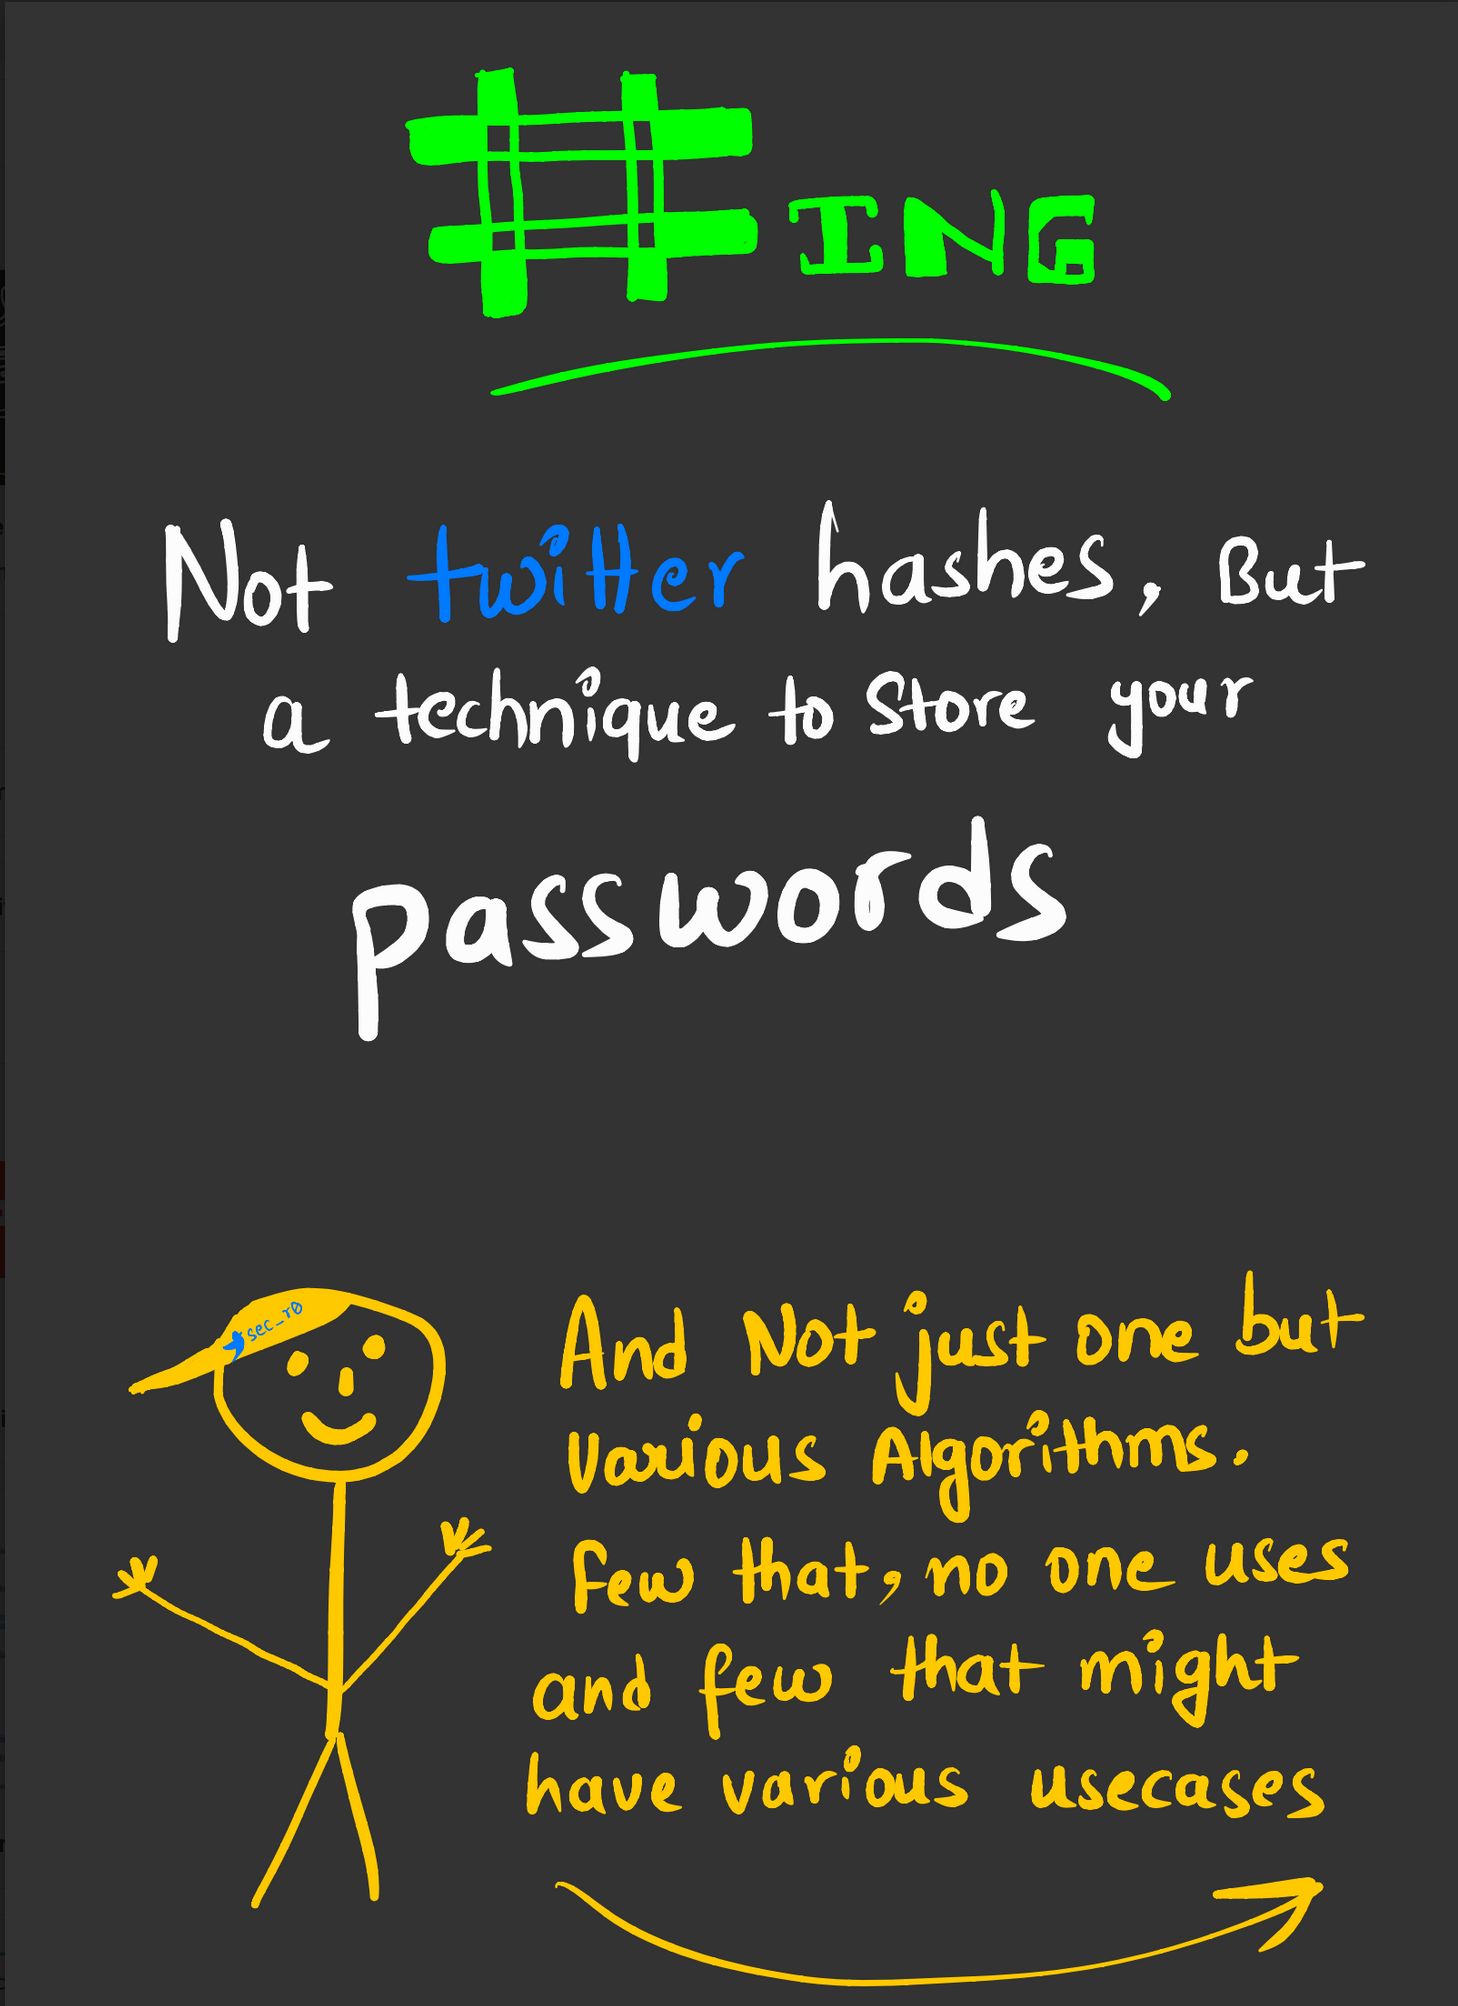 #ING
Not twitter hashes, But
a technique to store your
passwords
sec_r0
And Not just one but
various Algorithms.
few that, no one uses
and few that might
have various usecases